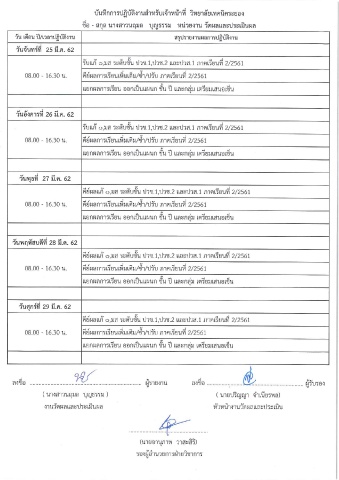 บันทึกการปฏิบัติงานสำหรับเจ้าหน้าที่ วิทยาลัยเทคนิคระยอง
ชื่อ - สกุล นางสาวนฤมล บุญธรรม หน่วยงาน วัดผลและประเมินผล
วัน เดือน ปี/เวลาปฏิบัติงาน สรุปรายงานผลการปฏิบัติงาน
วันจันทร์ที่ 25 มี.ค. 62
รับแก้ ๐,มส ระดับชั้น ปวช.1,ปวช.2 และปวส.1 ภาคเรียนที่ 2/2561
08.00 - 16.30 น. คีย์ผลการเรียนเพิ่มเติม/ซ้ำ/ปรับ ภาคเรียนที่ 2/2561
แยกผลการเรียน ออกเป็นแผนก ชั้น ปี และกลุ่ม เตรียมเสนอเซ็น
วันอังคารที่ 26 มี.ค. 62
รับแก้ ๐,มส ระดับชั้น ปวช.1,ปวช.2 และปวส.1 ภาคเรียนที่ 2/2561
08.00 - 16.30 น. คีย์ผลการเรียนเพิ่มเติม/ซ้ำ/ปรับ ภาคเรียนที่ 2/2561
แยกผลการเรียน ออกเป็นแผนก ชั้น ปี และกลุ่ม เตรียมเสนอเซ็น
วันพุธที่ 27 มี.ค. 62
คีย์ผลแก้ ๐,มส ระดับชั้น ปวช.1,ปวช.2 และปวส.1 ภาคเรียนที่ 2/2561
08.00 - 16.30 น. คีย์ผลการเรียนเพิ่มเติม/ซ้ำ/ปรับ ภาคเรียนที่ 2/2561
แยกผลการเรียน ออกเป็นแผนก ชั้น ปี และกลุ่ม เตรียมเสนอเซ็น
วันพฤหัสบดีที่ 28 มี.ค. 62
คีย์ผลแก้ ๐,มส ระดับชั้น ปวช.1,ปวช.2 และปวส.1 ภาคเรียนที่ 2/2561
08.00 - 16.30 น. คีย์ผลการเรียนเพิ่มเติม/ซ้ำ/ปรับ ภาคเรียนที่ 2/2561
แยกผลการเรียน ออกเป็นแผนก ชั้น ปี และกลุ่ม เตรียมเสนอเซ็น
วันศุกร์ที่ 29 มี.ค. 62
คีย์ผลแก้ ๐,มส ระดับชั้น ปวช.1,ปวช.2 และปวส.1 ภาคเรียนที่ 2/2561
08.00 - 16.30 น. คีย์ผลการเรียนเพิ่มเติม/ซ้ำ/ปรับ ภาคเรียนที่ 2/2561
แยกผลการเรียน ออกเป็นแผนก ชั้น ปี และกลุ่ม เตรียมเสนอเซ็น
ลงชื่อ ผู้รายงาน ลงชื่อ ผู้รับรอง
( นางสาวนฤมล บุญธรรม ) ( นายปริญญา จำเนียรพล )
งานวัดผลและประเมินผล หัวหน้างานวัดผลและประเมิน
(นายจานุภาพ วาสะสิริ)
รองผู้อำนวยการฝ่ายวิชาการ